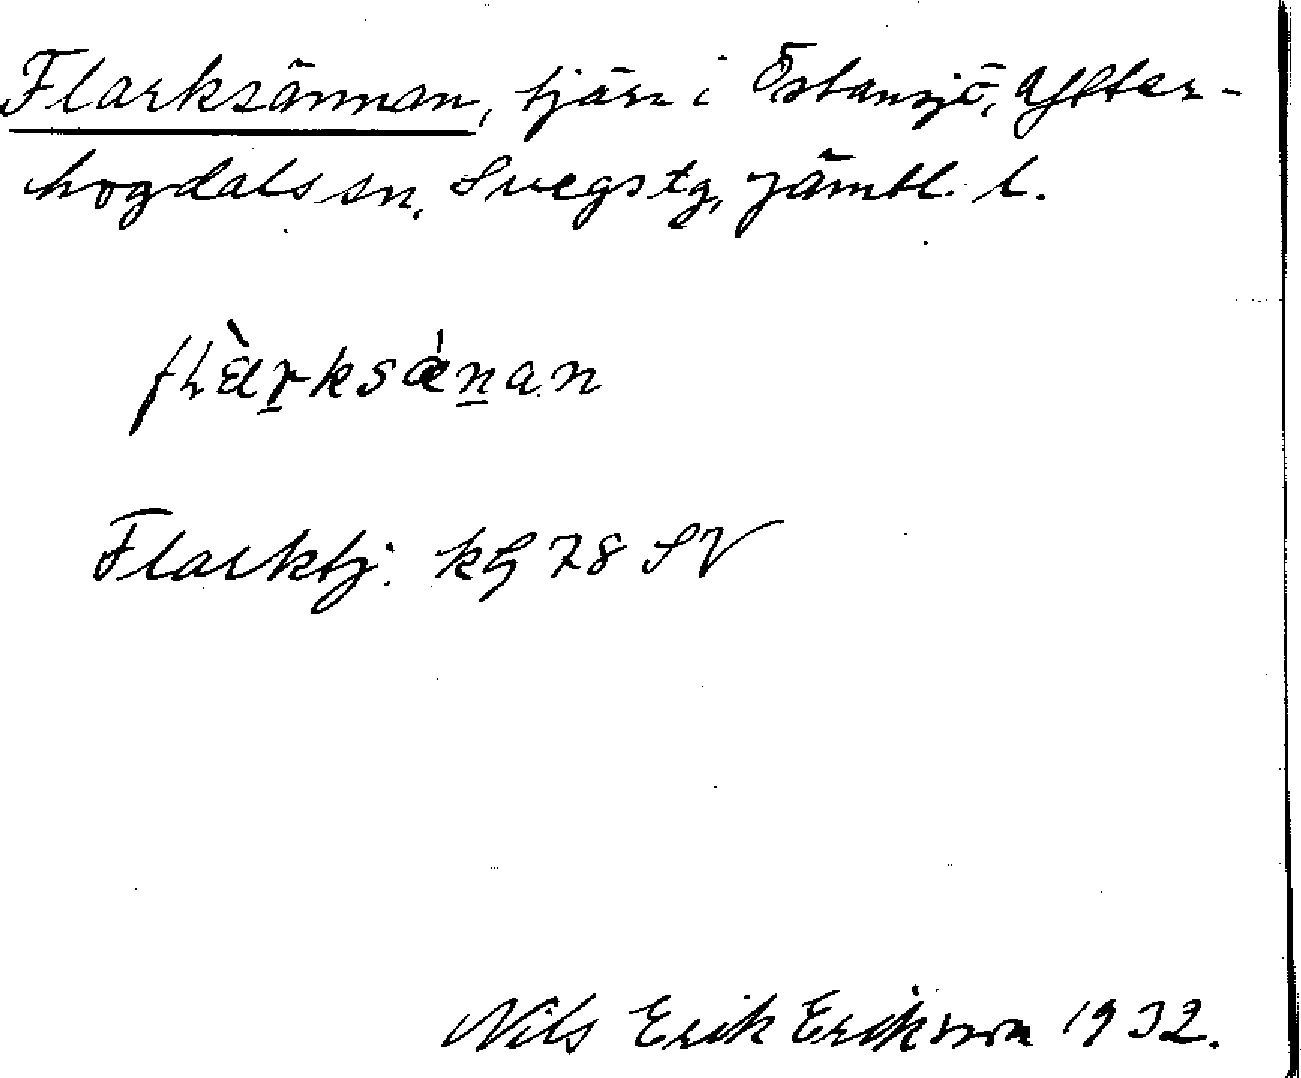 Flarksännan, tjärn i Östansjö, Ytter-
hogdals sn, Svegs tg, Jämtl. l.
fʟàr̲ksæ̀n̲an
Flarktj. kg 78 SV
Nils Erik Eriksson 1932.